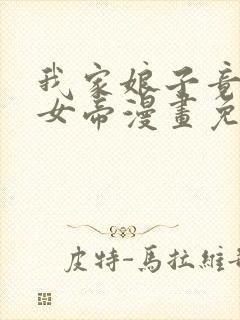 我家娘子竟
女帝漫畫免
皮特-馬拉維